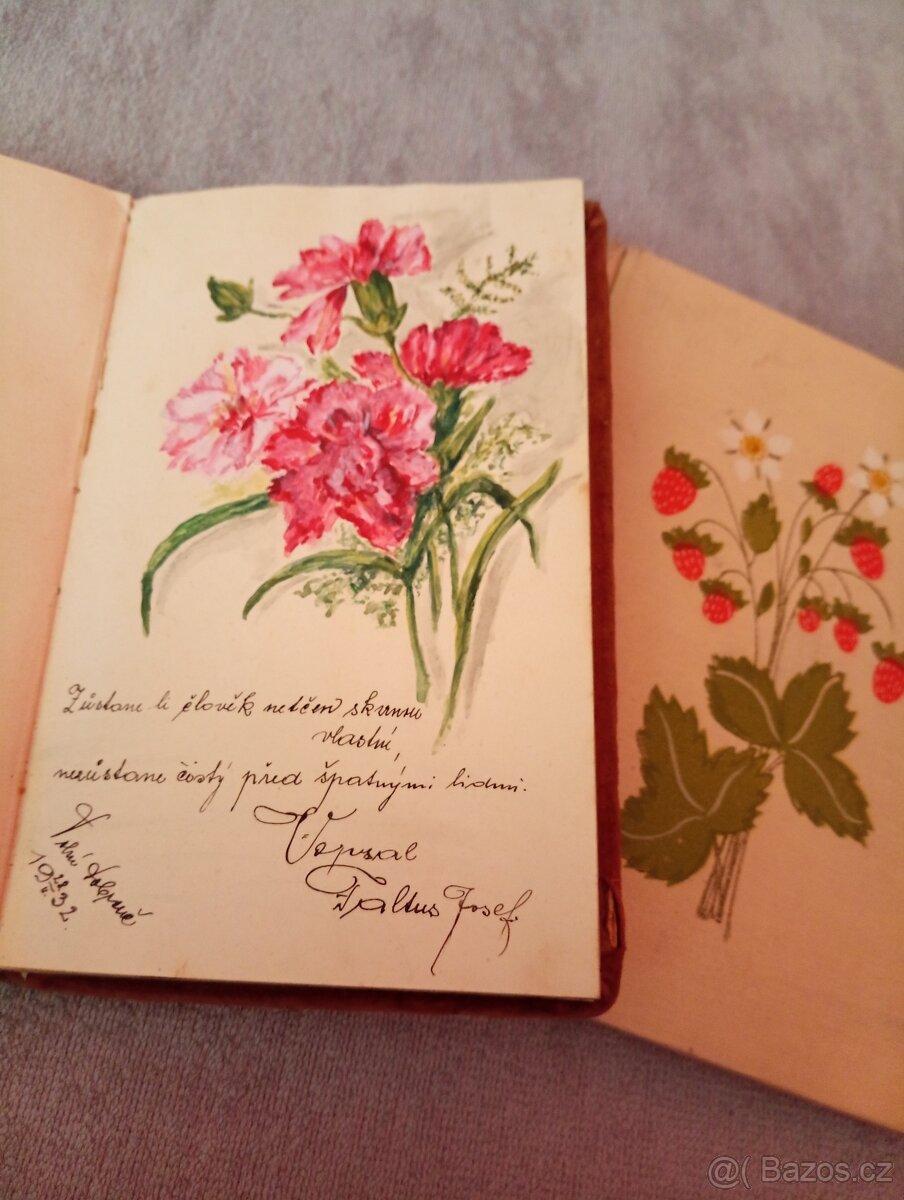 Zůstane li člověk netčen skvrnou
vlastní,
nezůstane čistý před špatnými lidmi.
Vepsal
Faltus Josef.
Dobrané
19 32.
@( Bazos.cz